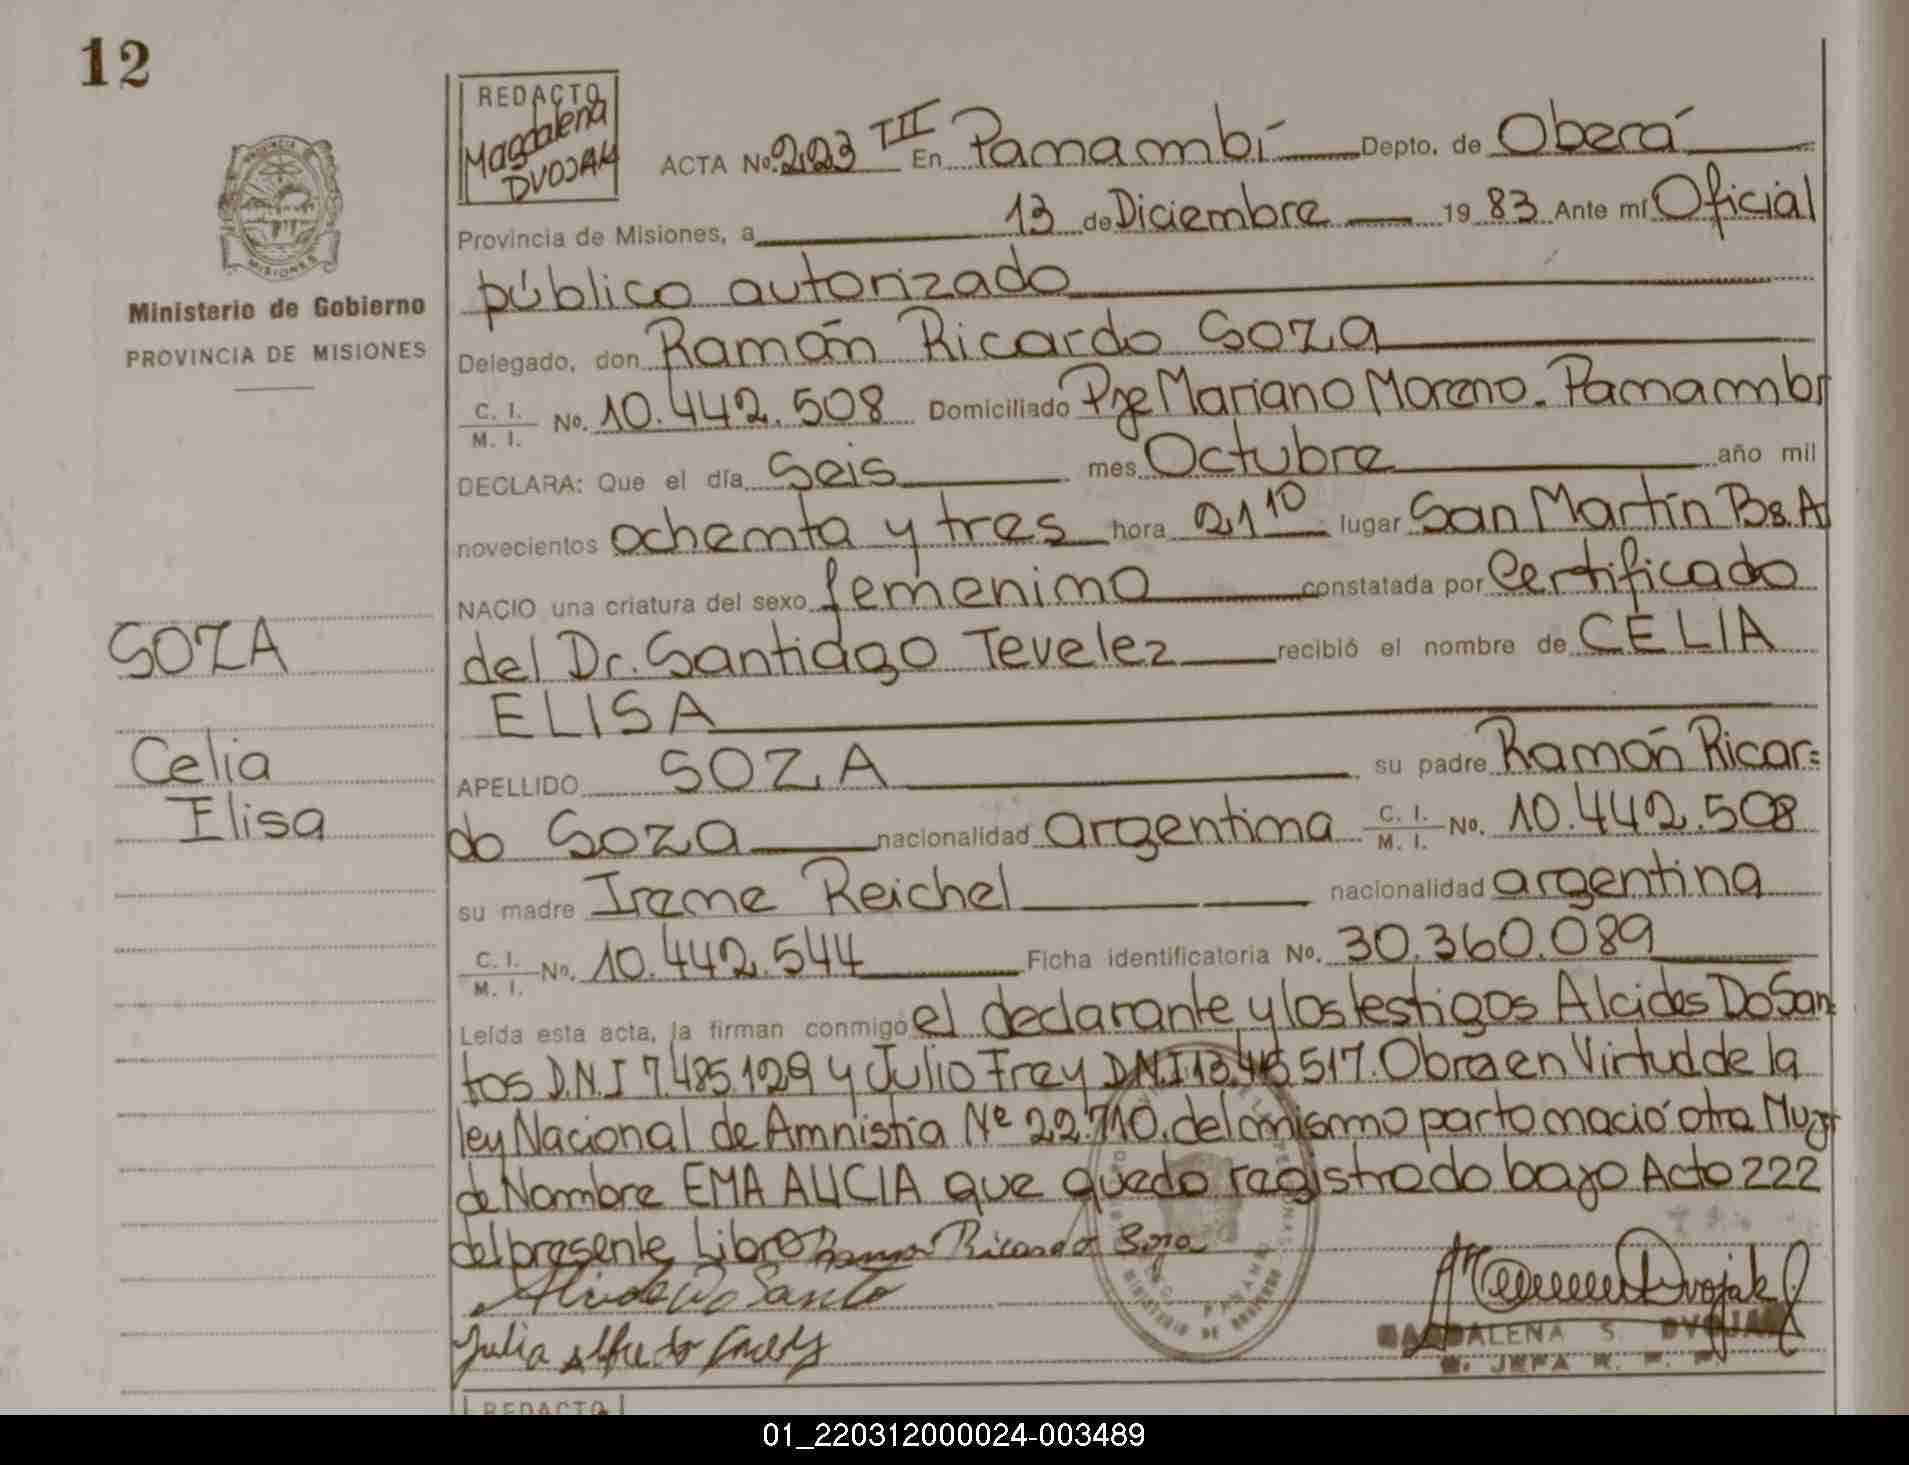 12
REDACTO
Magdalena
DVOJAK
ACTA No. 223 TII En Panambí Depto. de Oberá
PROVINCIA
MISIONES
Provincia de Misiones, a 13 de Diciembre 19 83 Ante mí Oficial
público autorizado
Ministerio de Gobierno
PROVINCIA DE MISIONES
Delegado, don Ramón Ricardo Soza
C. I.
M. I. No. 10.442.508 Domiciliado Pje Mariano Moreno - Panambí
DECLARA: Que el día Seis mes Octubre año mil
novecientos ochenta y tres hora 21 10 lugar San Martín Bs. A
NACIO una criatura del sexo femenino constatada por Certificado
SOZA
del Dr. Santiago Tevelez recibió el nombre de CELIA
ELISA
Celia
Elisa
APELLIDO SOZA su padre Ramón Ricar=
do Soza nacionalidad argentina C. I. M. I. No. 10.442.508
su madre Irene Reichel nacionalidad argentina
C. I.
M. I. No. 10.442.544 Ficha identificatoria No. 30.360.089
Leída esta acta, la firman conmigo el declarante y los testigos Alcides Do San
tos D.N.I 7.485.129 y Julio Frey D.N.I 517. Obra en Virtud de la
ley Nacional de Amnistía Nº 22.710. del mismo parto nació otra Mujer
de Nombre EMA ALICIA que quedo registrado bajo Acto 222
del presente Libro Ramon Ricardo Soza
Alcide Do Santo
Julio Alfredo
Dvojak
MAGDALENA S. DVOJAK
JEFA R. P. P.
MINISTERIO DE GOBIERNO
REDACTO
01_220312000024-003489